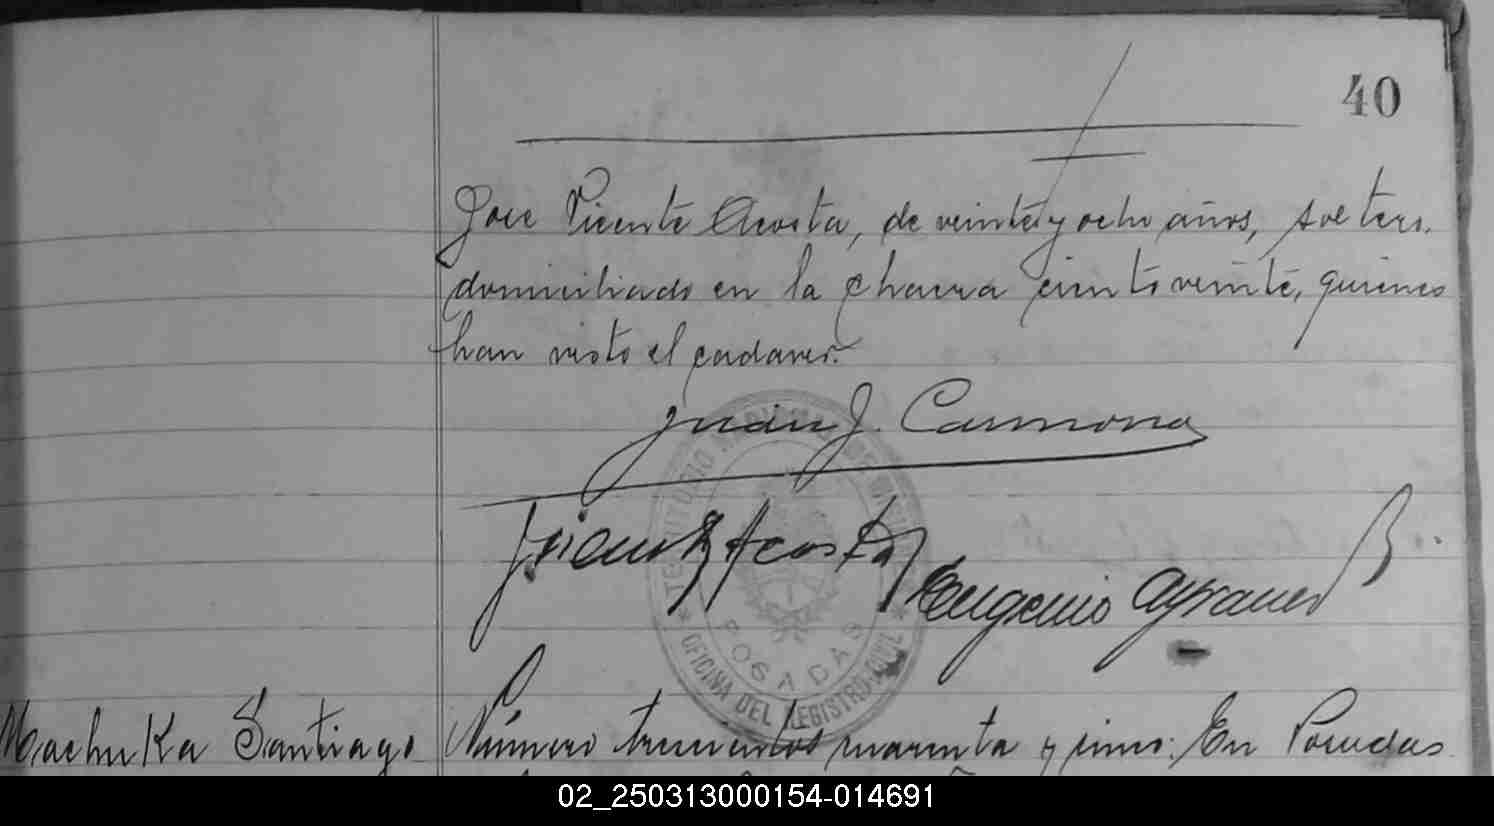 40
Jose Vicente Acosta, de veinte y ocho años, soltero,
domiciliado en la chacra ciento veinte, quienes
han visto el cadaver.
Juan J. Carmona
Acosta
Eugenio
TERRITORIO NACIONAL DE MISIONES
POSADAS
OFICINA DEL REGISTRO CIVIL
Machuka Santiago
Número trescientos cuarenta y cinco: En Posadas
02_250313000154-014691